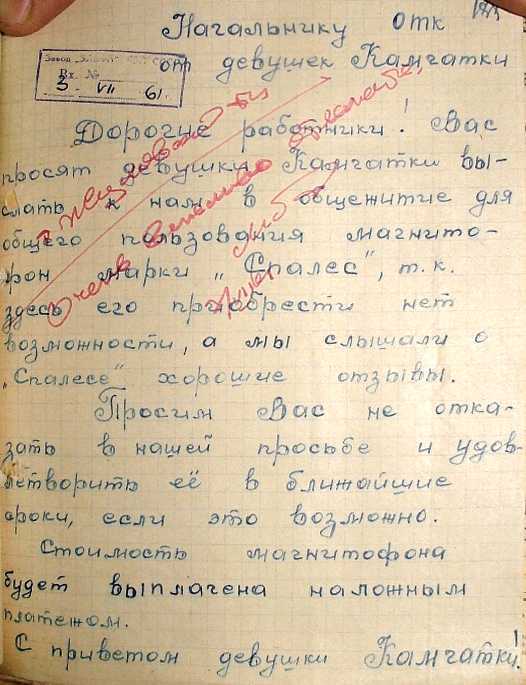 Начальнику ОТК
от девушек Камчатки
Вх. №
3 - VII 61.
Дорогие работники! Вас
просят девушки Камчатки вы-
слать к нам в общежитие для
общего пользования магнито-
фон марки „Спалес“, т. к.
здесь его приобрести нет
возможности, а мы слышали о
„Спалесе“ хорошие отзывы.
Просим Вас не отка-
зать в нашей просьбе и удов-
летворить её в ближайшие
сроки, если это возможно.
Стоимость магнитофона
будет выплачена наложным
платежом.
С приветом девушки Камчатки!